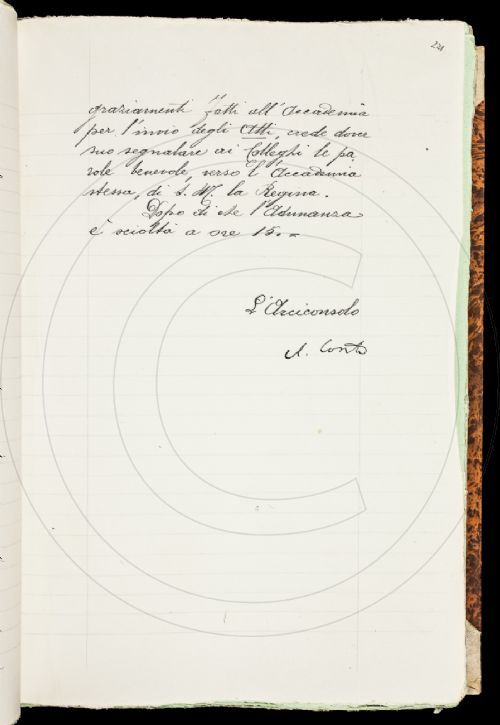 221
graziamenti fatti all'Accademia
per l'invio degli Atti, crede dove
suo segnalare ai Colleghi le pa,
role benevole verso l'Accademia
stessa, di S. M. la Regina.
Dopo di che l'Adunanza
è sciolta a ore 15.=
L'Arciconsolo
A. Conti